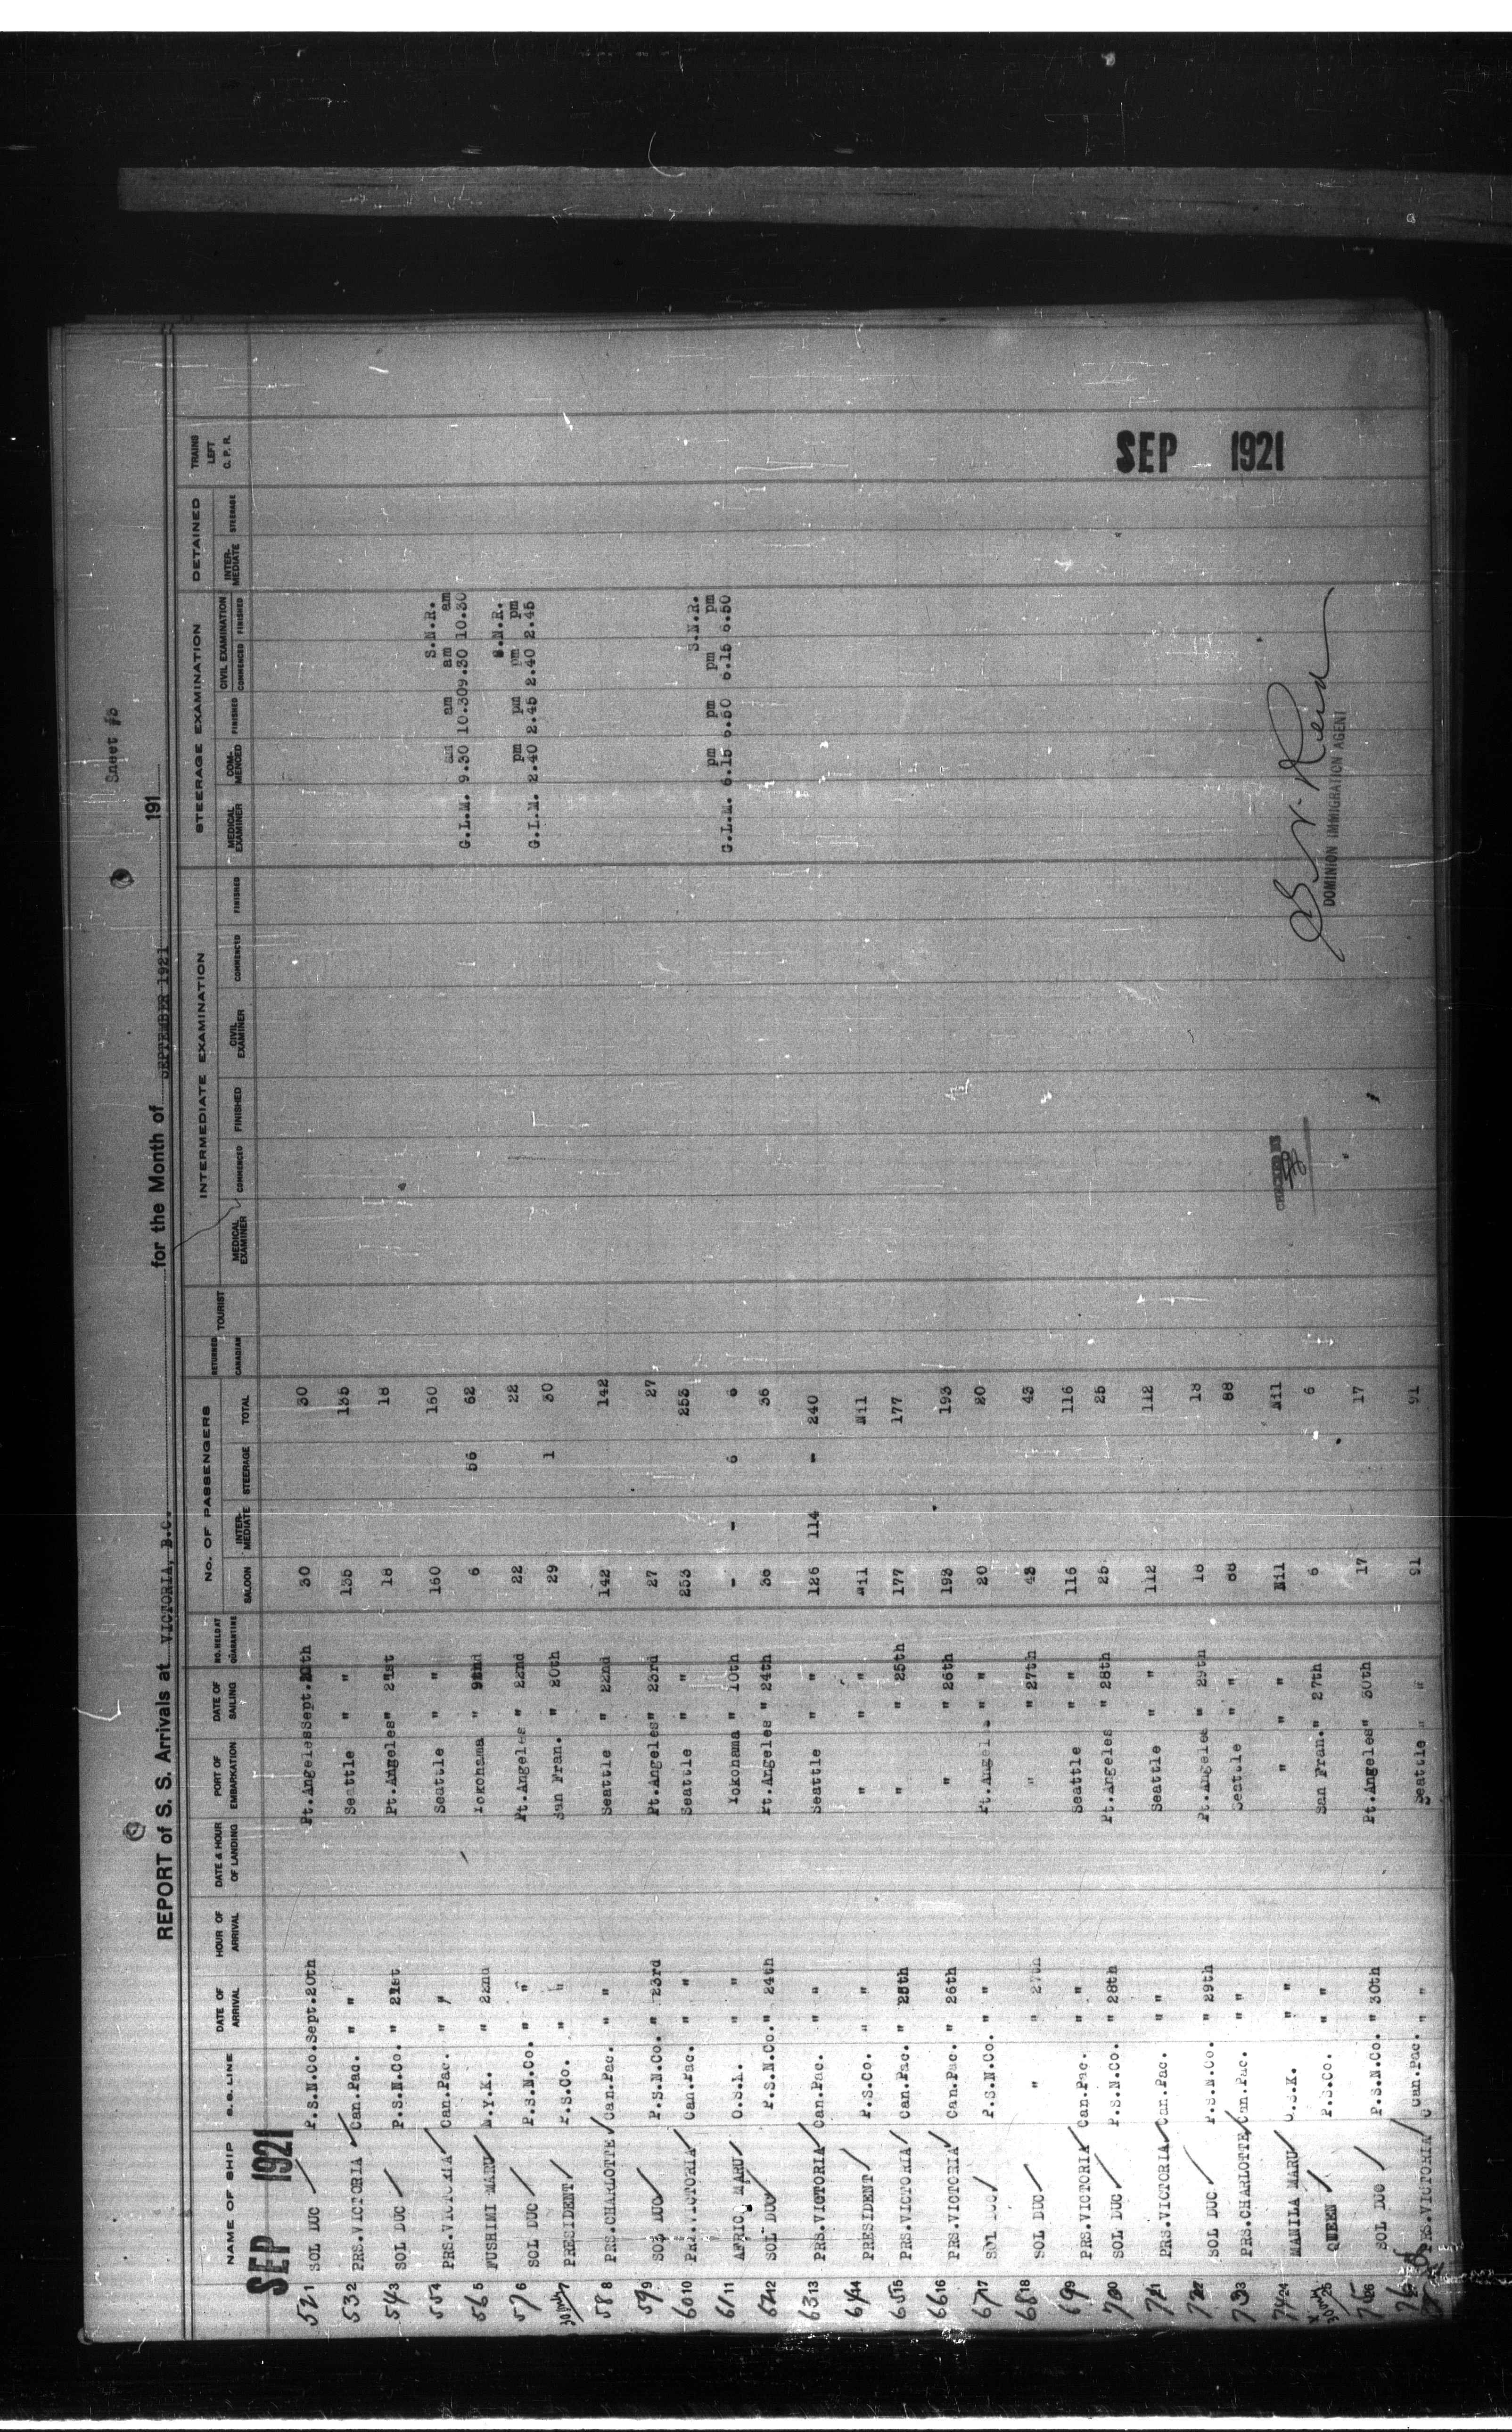 Sheet #3
REPORT of S. S. Arrivals at VICTORIA, B.C. for the Month of SEPTEMBER 1921 191
NAME OF SHIP S.S. LINE DATE OF ARRIVAL HOUR OF ARRIVAL DATE & HOUR OF LANDING PORT OF EMBARKATION DATE OF SAILING NO. HELD AT QUARANTINE No. OF PASSENGERS SALOON INTER-MEDIATE STEERAGE TOTAL RETURNED CANADIAN TOURIST INTERMEDIATE EXAMINATION MEDICAL EXAMINER COMMENCED FINISHED CIVIL EXAMINER COMMENCED FINISHED STEERAGE EXAMINATION MEDICAL EXAMINER COM-MENCED FINISHED CIVIL EXAMINATION COMMENCED FINISHED DETAINED INTER-MEDIATE STEERAGE TRAINS LEFT C. P. R.
SEP 1921
52 1 SOL DUC P.S.N.Co. Sept. 20th Pt.Angeles Sept. 20th 30 30
53 2 PRS.VICTORIA Can.Pac. " " Seattle " " 135 135
54 3 SOL DUC P.S.N.Co. " 21st Pt.Angeles " 21st 18 18
55 4 PRS.VICTORIA Can.Pac. " " Seattle " " 160 160 S.N.R.
56 5 FUSHIMI MARU N.Y.K. " 22nd Yokohama " 6 56 62 G.L.M. 9.30 am 10.30 am 9.30 am 10.30 am
57 6 SOL DUC P.S.N.Co. " " Pt.Angeles " 22nd 22 22 S.N.R.
7 PRESIDENT P.S.Co. " " San Fran. " 20th 29 1 30 G.L.M. 2.40 pm 2.45 pm 2.40 pm 2.45 pm
58 8 PRS.CHARLOTTE Can.Pac. " " Seattle " 22nd 142 142
59 9 SOL DUC P.S.N.Co. " 23rd Pt.Angeles " 23rd 27 27
60 10 PRS.VICTORIA Can.Pac. " " Seattle " " 253 253 S.N.R.
61 11 AFRIC. MARU O.S.K. " " Yokohama " 10th - - 6 6 G.L.M. 6.15 pm 6.50 pm 6.15 pm 6.50 pm
62 12 SOL DUC P.S.N.Co. " 24th Pt.Angeles " 24th 36 36
63 13 PRS.VICTORIA Can.Pac. " " Seattle " " 126 114 - 240
64 14 PRESIDENT P.S.Co. " " " " " Nil Nil
65 15 PRS.VICTORIA Can.Pac. " 25th " " 25th 177 177
66 16 PRS.VICTORIA Can.Pac. " 26th " " 26th 193 193
67 17 SOL DUC P.S.N.Co. " " Pt.Angeles " " 20 20
68 18 SOL DUC " " 27th " " 27th 43 43
69 19 PRS.VICTORIA Can.Pac. " " Seattle " " 116 116
70 20 SOL DUC P.S.N.Co. " 28th Pt.Angeles " 28th 25 25
71 21 PRS.VICTORIA Can.Pac. " " Seattle " " 112 112
72 22 SOL DUC P.S.N.Co. " 29th Pt.Angeles " 29th 18 18
73 23 PRS.CHARLOTTE Can.Pac. " " Seattle " " 88 88
74 24 MANILA MARU O.S.K. " " " " " Nil Nil
25 QUEEN P.S.Co. " " San Fran. " 27th 6 6
75 26 SOL DUC P.S.N.Co. " 30th Pt.Angeles " 30th 17 17
76 PRS.VICTORIA Can.Pac. " " Seattle " " 91 91
SEP 1921
CHECKED BY
Reid
DOMINION IMMIGRATION AGENT